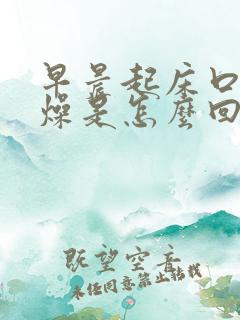 早晨起床口
燥是怎麼回
既望空音
未经同意禁止转载